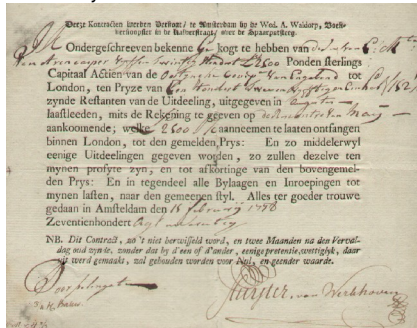 Deeze Kontracten werden Verkoft / te Amsterdam by de Wed. A. Waldorp, Boek-
verkoopster in de Kalverstraat over de Spaarpotsteeg.
Ondergeschreeven bekenne ge kogt te hebben van
£ 2600 Ponden sterlings
Capitaal Actien van de van Engeland tot
London, ten Pryze van
zynde Restanten van de Uitdeeling, uitgegeven in
laastleeden, mits de Rekening te geeven op May
aankoomende; welke 2600 aanneemen te laaten ontfangen
binnen London, tot den gemelden Prys: En zo middelerwyl
eenige Uitdeelingen gegeven worden, zo zullen dezelve ten
mynen profyte zyn, en tot afkortinge van den bovengemel-
den Prys: En in tegendeel alle Bylaagen en Inroepingen tot
mynen lasten, naar den gemeenen styl. Alles ter goeder trouwe
gedaan in Amsteldam den 18 february 1748
Zeventienhondert
NB. Dit Contract, zo 't niet verwisseld word, en twee Maanden na den Verval-
dag oud zynde, zonder dat by d'een of d'ander, eenige pretentie, wettiglyk, daar
uit werd gemaakt, zal gehouden worden voor Nul, en geender waarde.
van Werkhoven